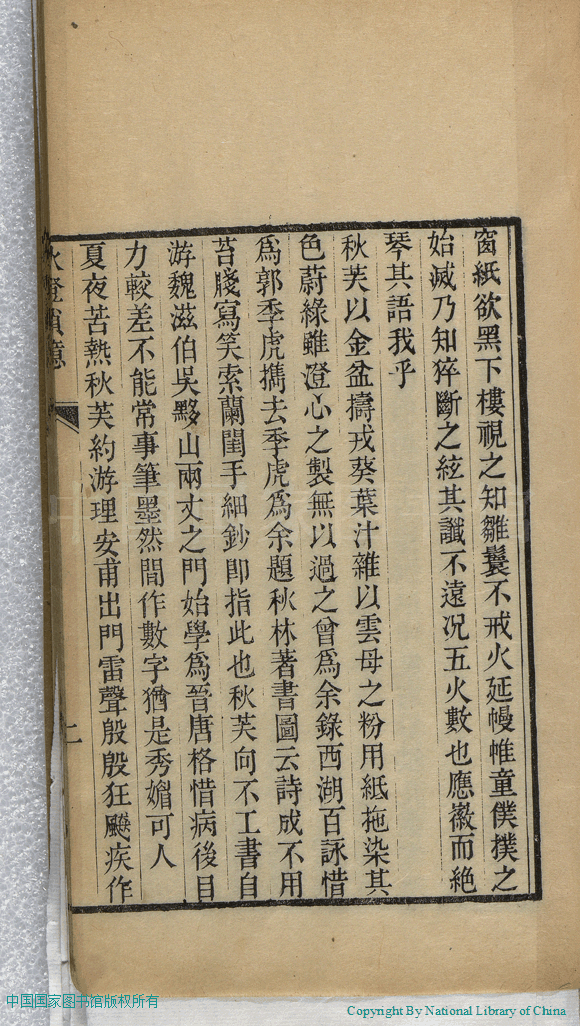 窗紙欲黑下樓視之知雛鬟不戒火延幔帷童僕撲之
始滅乃知猝斷之絃其讖不遠況五火數也應徽而絶
琴其語我乎
秋芙以金盆擣戎葵葉汁雜以雲母之粉用紙拖染其
色蔚綠雖澄心之製無以過之曾爲余錄西湖百詠惜
爲郭季虎擕去季虎爲余題秋林著書圖云詩成不用
苔牋寫笑索蘭閨手細鈔卽指此也秋芙向不工書自
游魏滋伯吳黟山兩丈之門始學爲晉唐格惜病後目
力較差不能常事筆墨然閒作數字猶是秀媚可人
夏夜苦熱秋芙約游理安甫出門雷聲殷殷狂飈疾作
燈瑣憶
二
中国国家图书馆版权所有
Copyright By National Library of China